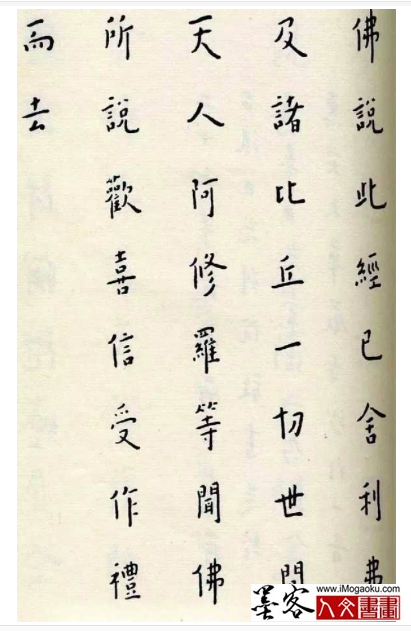 佛說此經已舍利弗
及諸比丘一切世間
天人阿修羅等聞佛
所說歡喜信受作禮
而去
www.iMogaoku.com
墨客
人文書畫